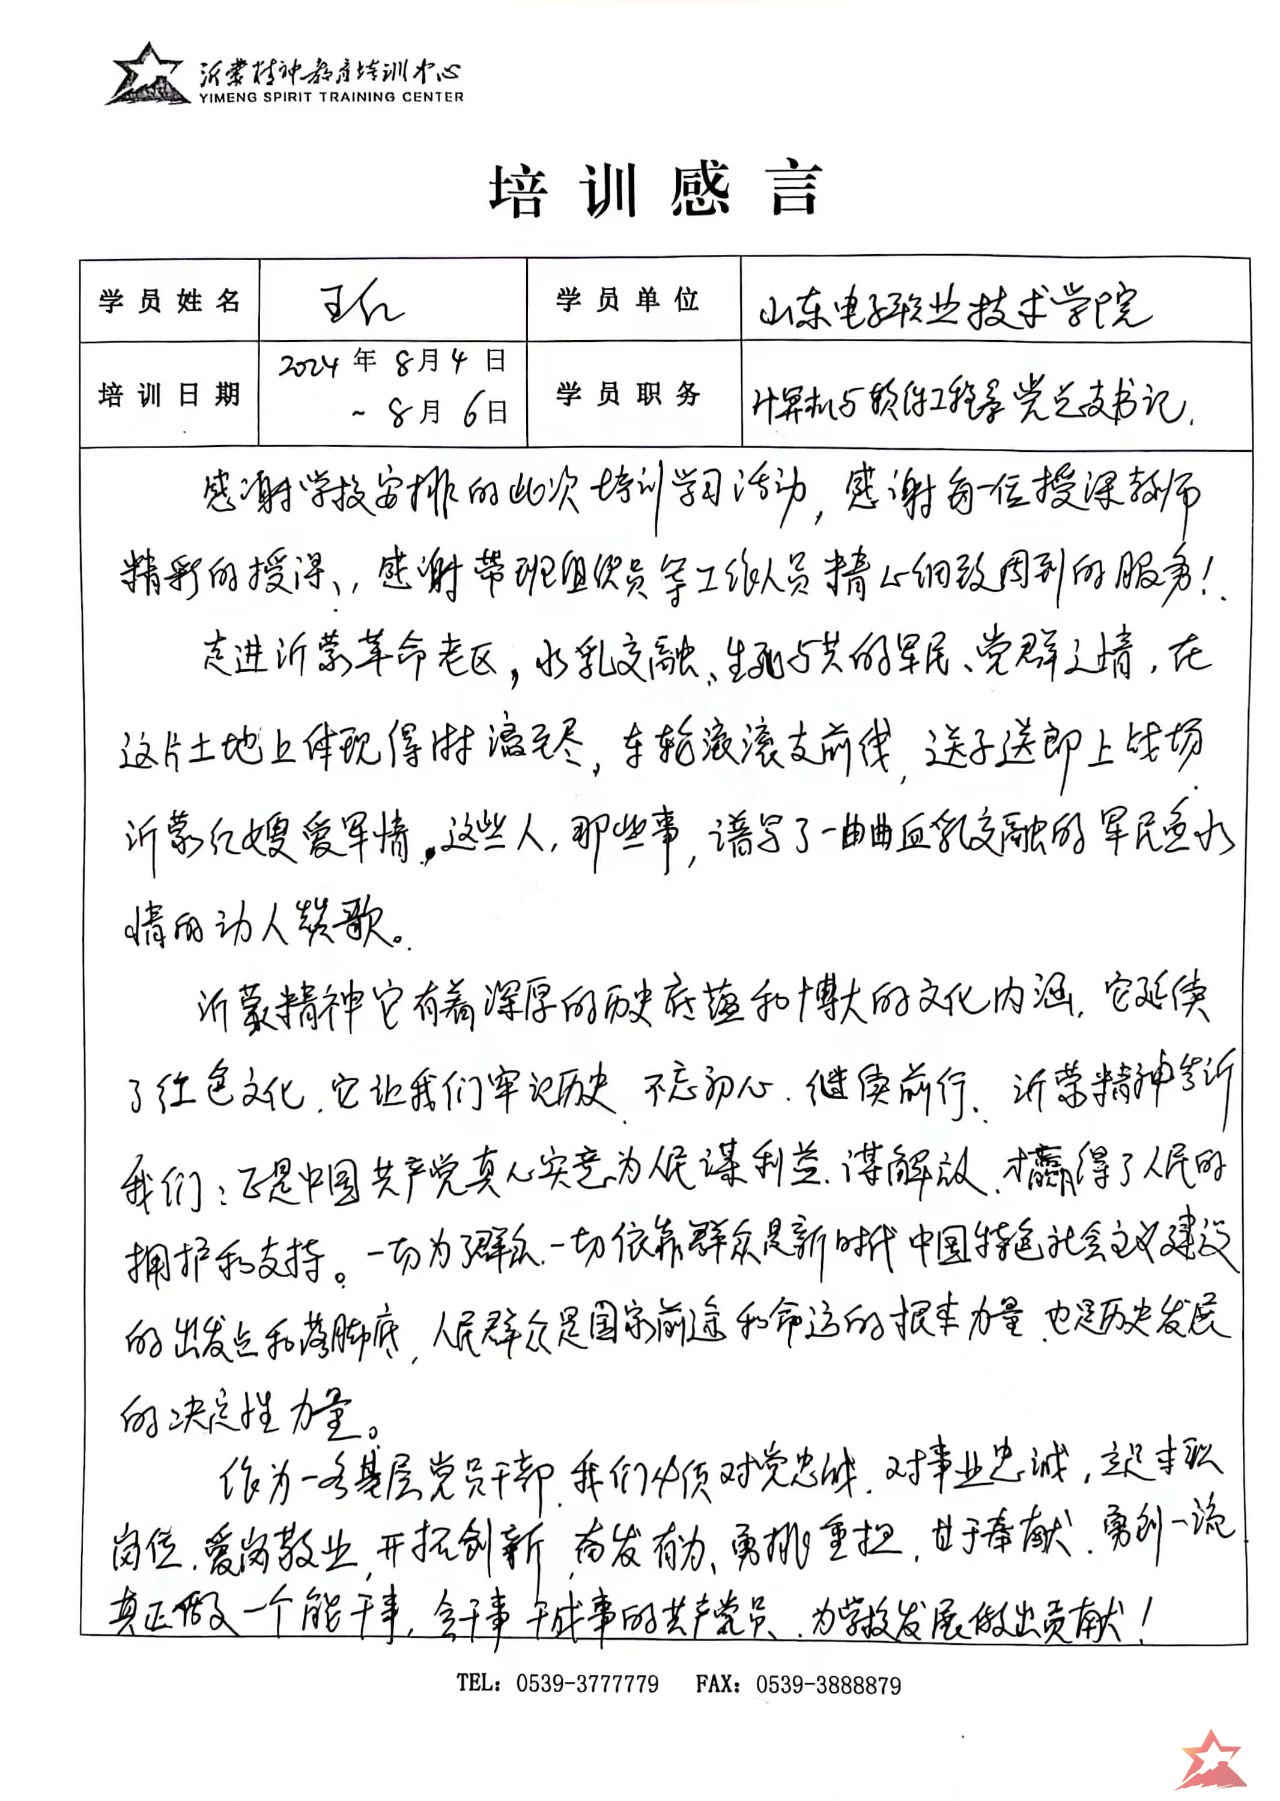 沂蒙精神教育培训中心
YIMENG SPIRIT TRAINING CENTER
培训感言
学员姓名 王仁 学员单位 山东电子职业技术学院
培训日期 2024年8月4日 ~8月6日 学员职务 计算机与软件工程系党总支书记.
感谢学校安排的此次培训学习活动,感谢每一位授课教师
精彩的授课、,感谢带班组织员等工作人员精心细致周到的服务!
走进沂蒙革命老区,水乳交融、生死与共的军民、党群之情,在
这片土地上体现得淋漓无尽,车轮滚滚支前线,送子送郎上战场.
沂蒙红嫂爱军情,这些人,那些事,谱写了一曲曲血乳交融的军民鱼水
情的动人赞歌。
沂蒙精神它有着深厚的历史底蕴和博大的文化内涵,它延续
了红色文化,它让我们牢记历史、不忘初心、继续前行、沂蒙精神告诉
我们:正是中国共产党真心实意为人民谋利益、谋解放、才赢得了人民的
拥护和支持。一切为了群众、一切依靠群众是新时代中国特色社会主义建设
的出发点和落脚底,人民群众是国家前途和命运的根本力量、也是历史发展
的决定性力量。
作为一名基层党员干部,我们必须对党忠诚、对事业忠诚,立足本职
岗位、爱岗敬业,开拓创新,奋发有为、勇挑重担,甘于奉献、勇创一流
真正做文一个能干事,会干事干成事的共产党员、为学校发展做出贡献!
TEL: 0539-3777779 FAX: 0539-3888879